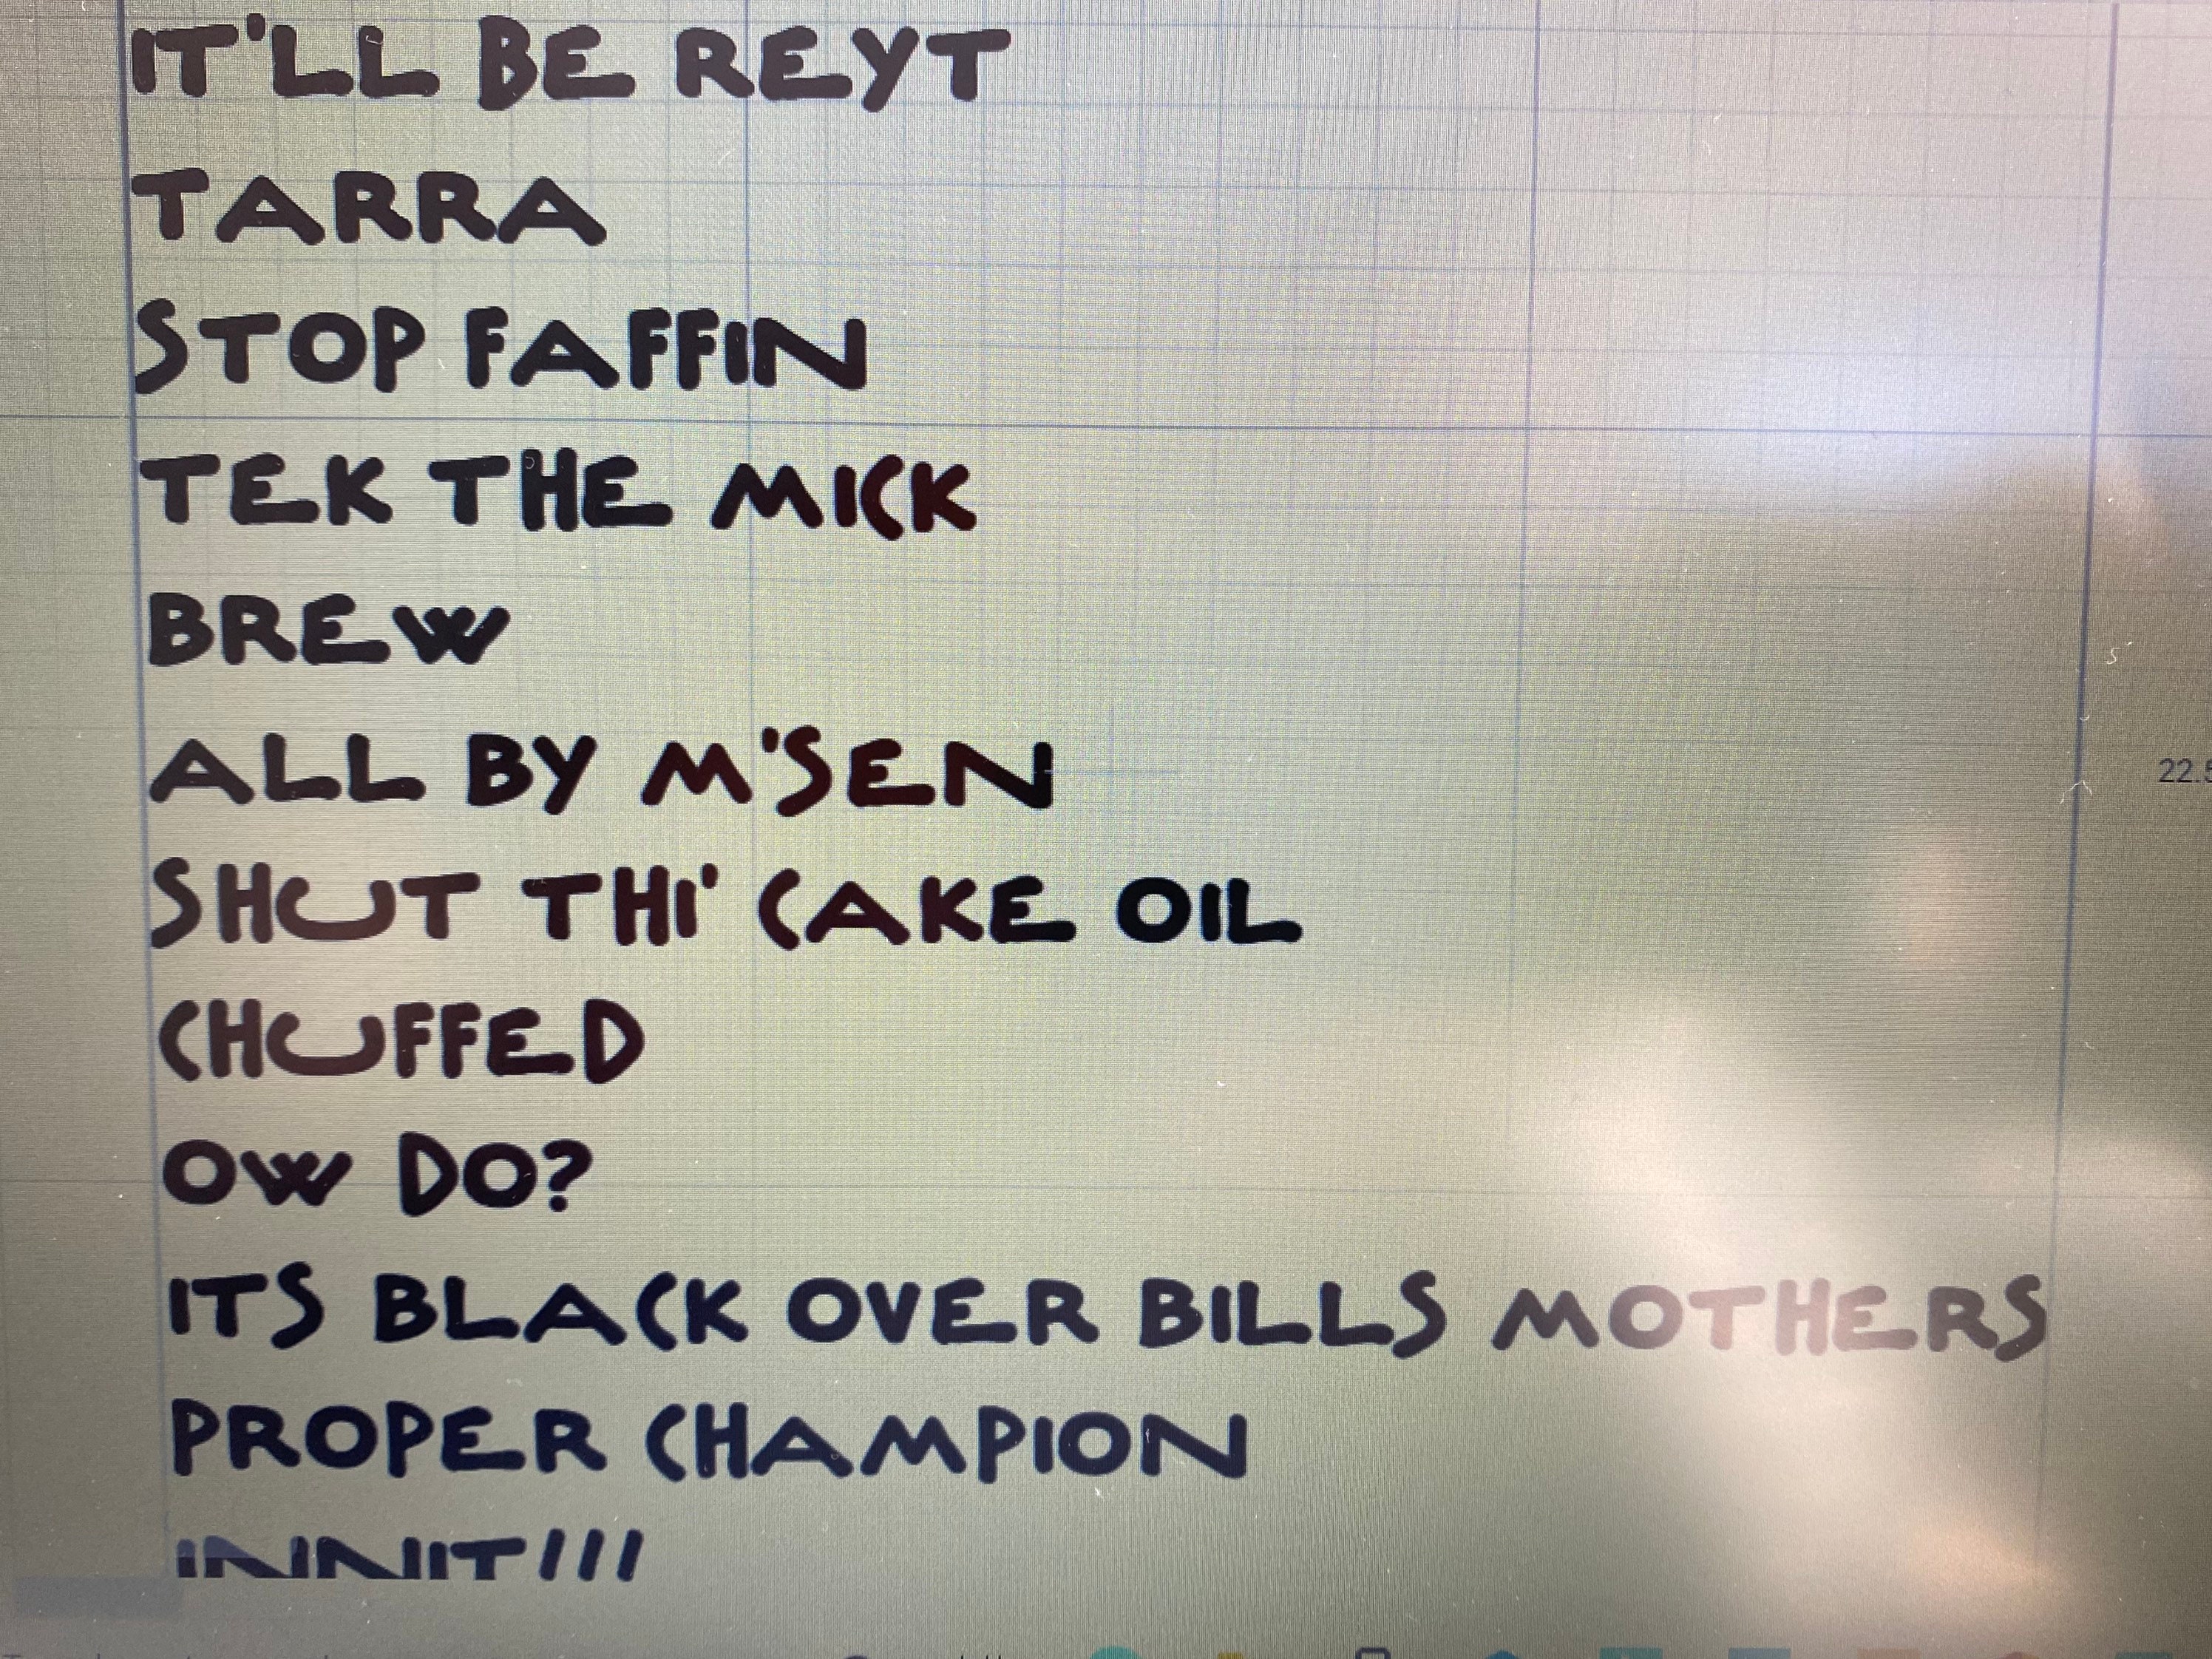 IT'LL BE REYT
TARRA
STOP FAFFIN
TEK THE MICK
BREW
ALL BY M'SEN
SHUT THI' CAKE OIL
CHUFFED
OW DO?
ITS BLACK OVER BILLS MOTHERS
PROPER CHAMPION
INNIT!!!